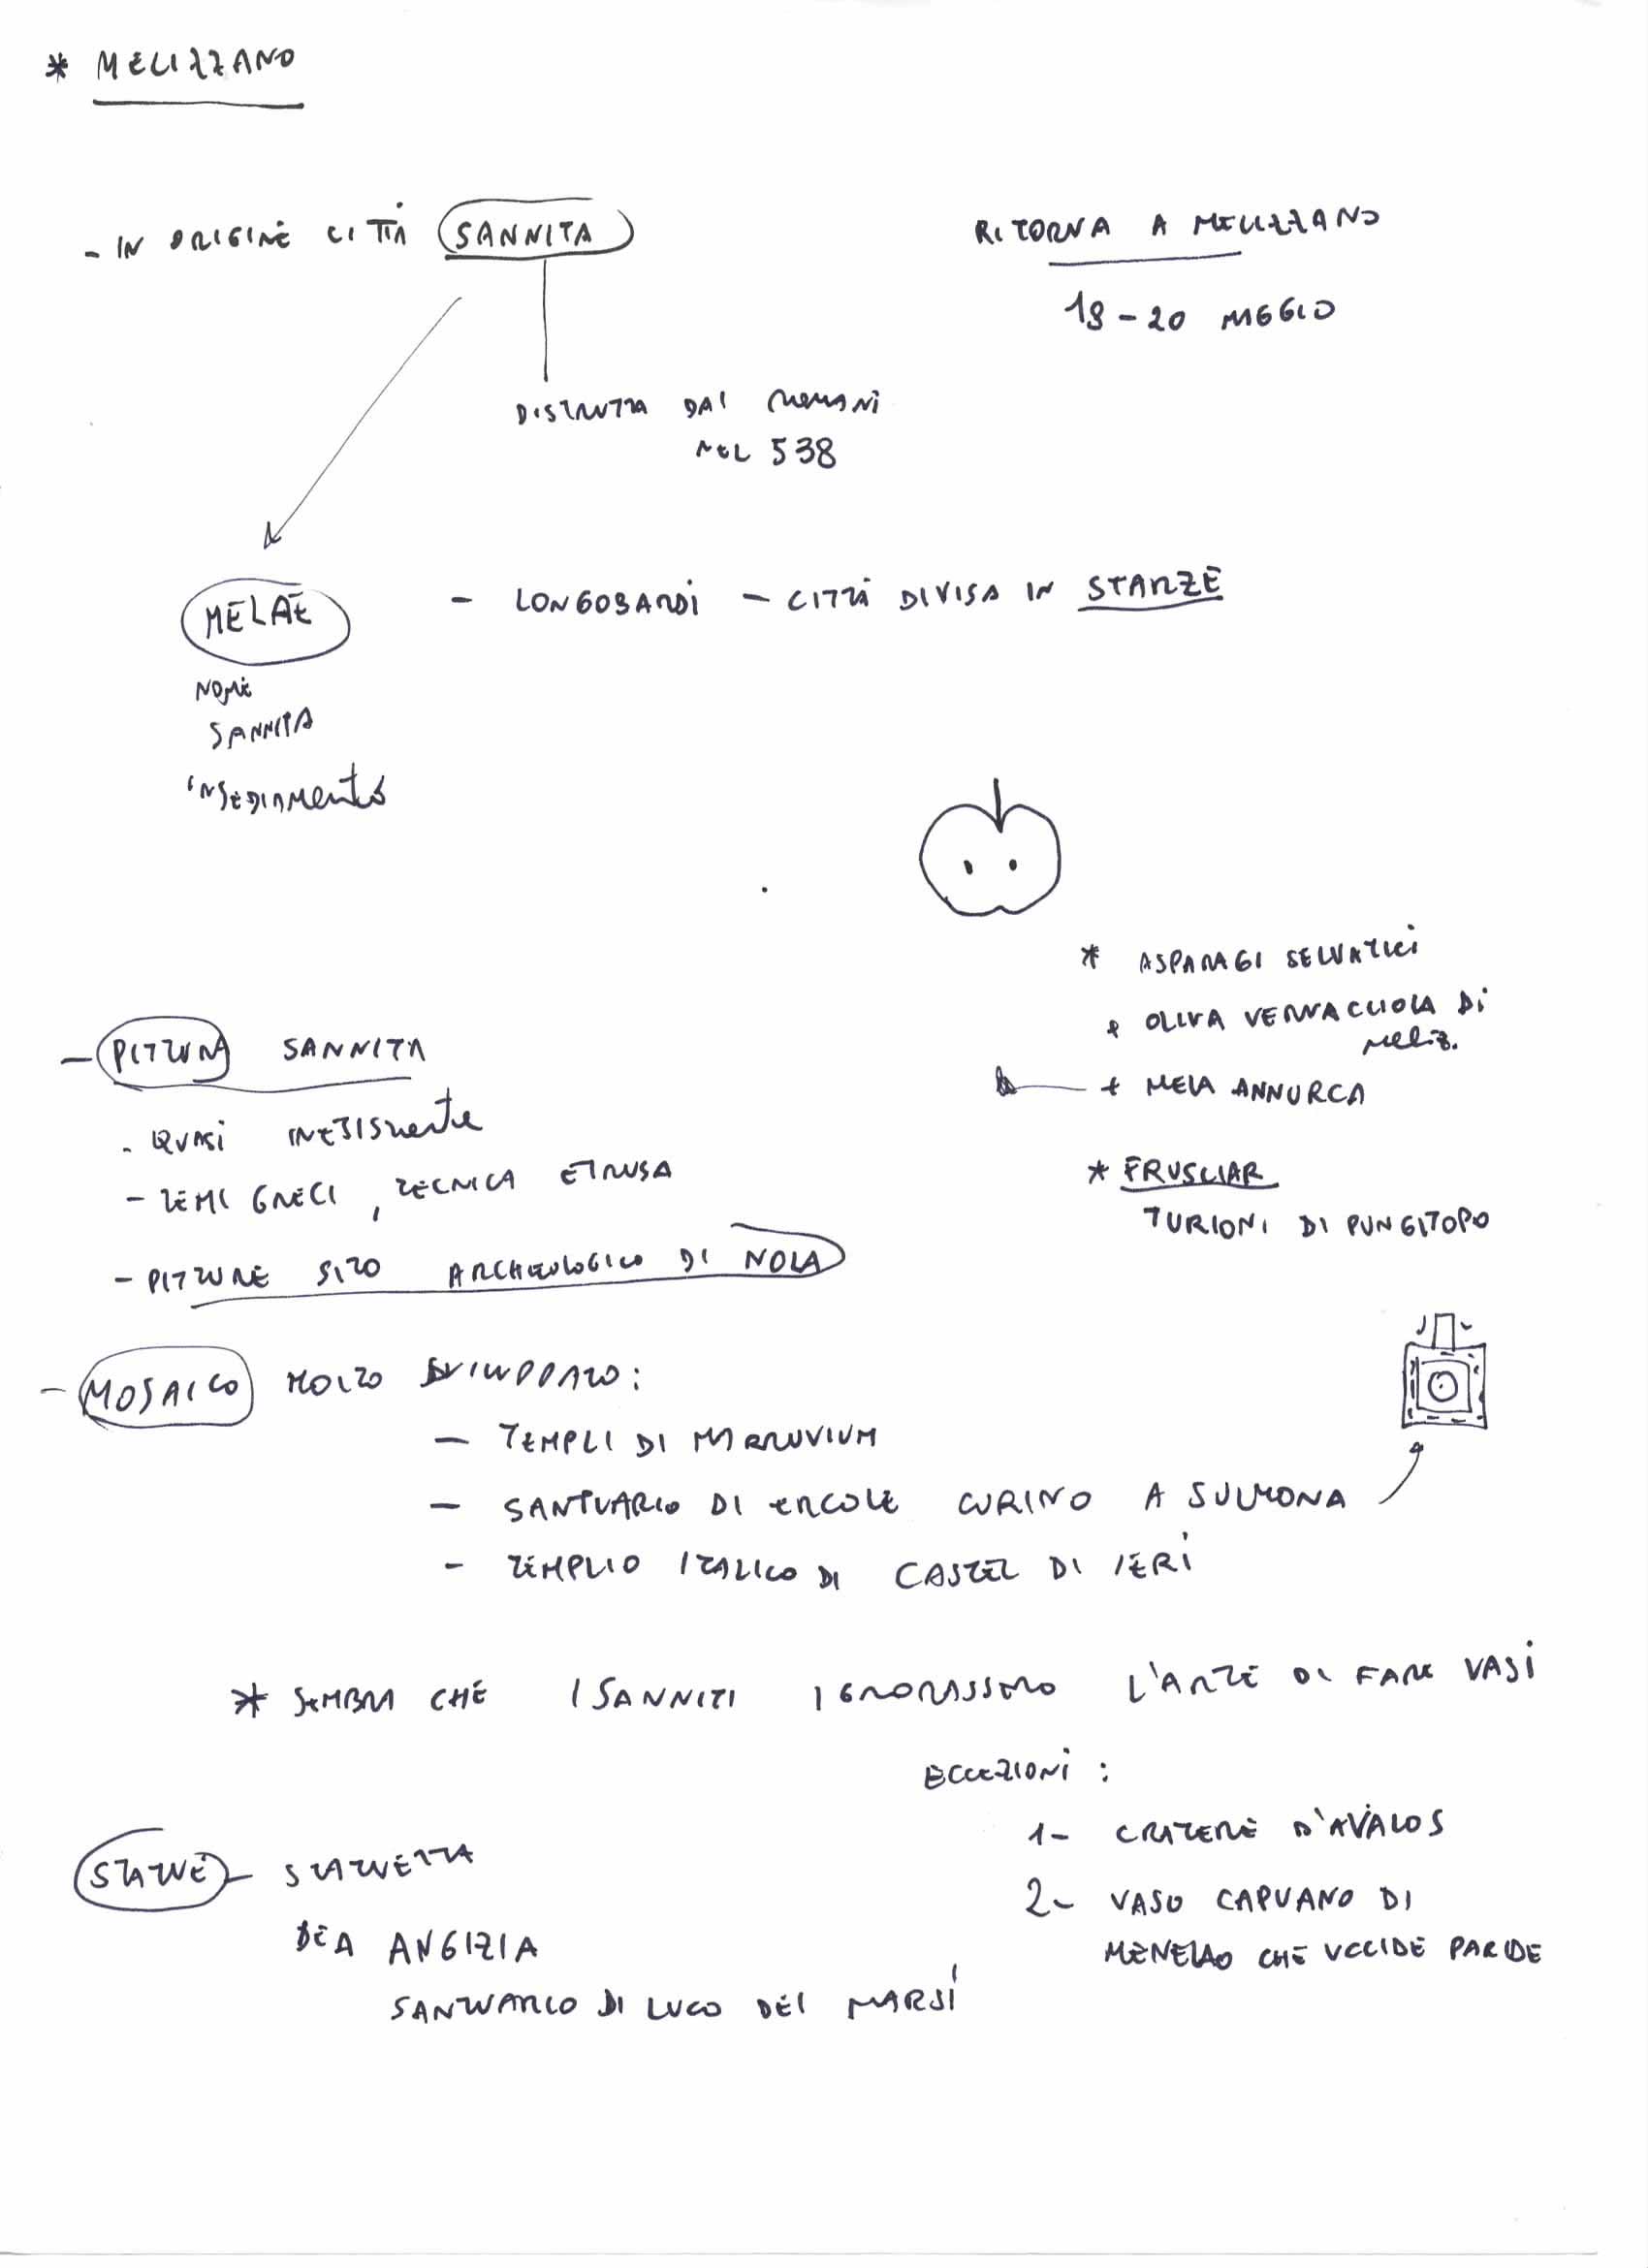 * MELIZZANO
- IN ORIGINE CITTÀ SANNITA
RITORNA A MELIZZANO
19-20 MAGGIO
DISTRUTTA DAI ROMANI
NEL 538
MELAE
- LONGOBARDI - CITTÀ DIVISA IN STANZE
NOME
SANNITA
INSEDIAMENTO
* ASPARAGI SELVATICI
* OLIVA VERNACCIOLA DI
MELIZ.
* MELA ANNURCA
* FRUSCIAR
TURIONI DI PUNGITOPO
- PITTURA SANNITA
- QUASI INESISTENTE
- TEMI GRECI, TECNICA ETRUSA
- PITTURE SITO ARCHEOLOGICO DI NOLA
- MOSAICO MOLTO SVILUPPATO:
- TEMPLI DI MARRUVIUM
- SANTUARIO DI ERCOLE CURINO A SULMONA
- TEMPLIO ITALICO DI CASTEL DI IERI
* SEMBRA CHE I SANNITI IGNORASSERO L'ARTE DI FARE VASI
ECCEZIONI:
1- CRATERE D'AVALOS
2- VASO CAPUANO DI
MENELAO CHE UCCIDE PARIDE
STATUE - STATUETTA
DEA ANGIZIA
SANTUARIO DI LUCO DEI MARSI